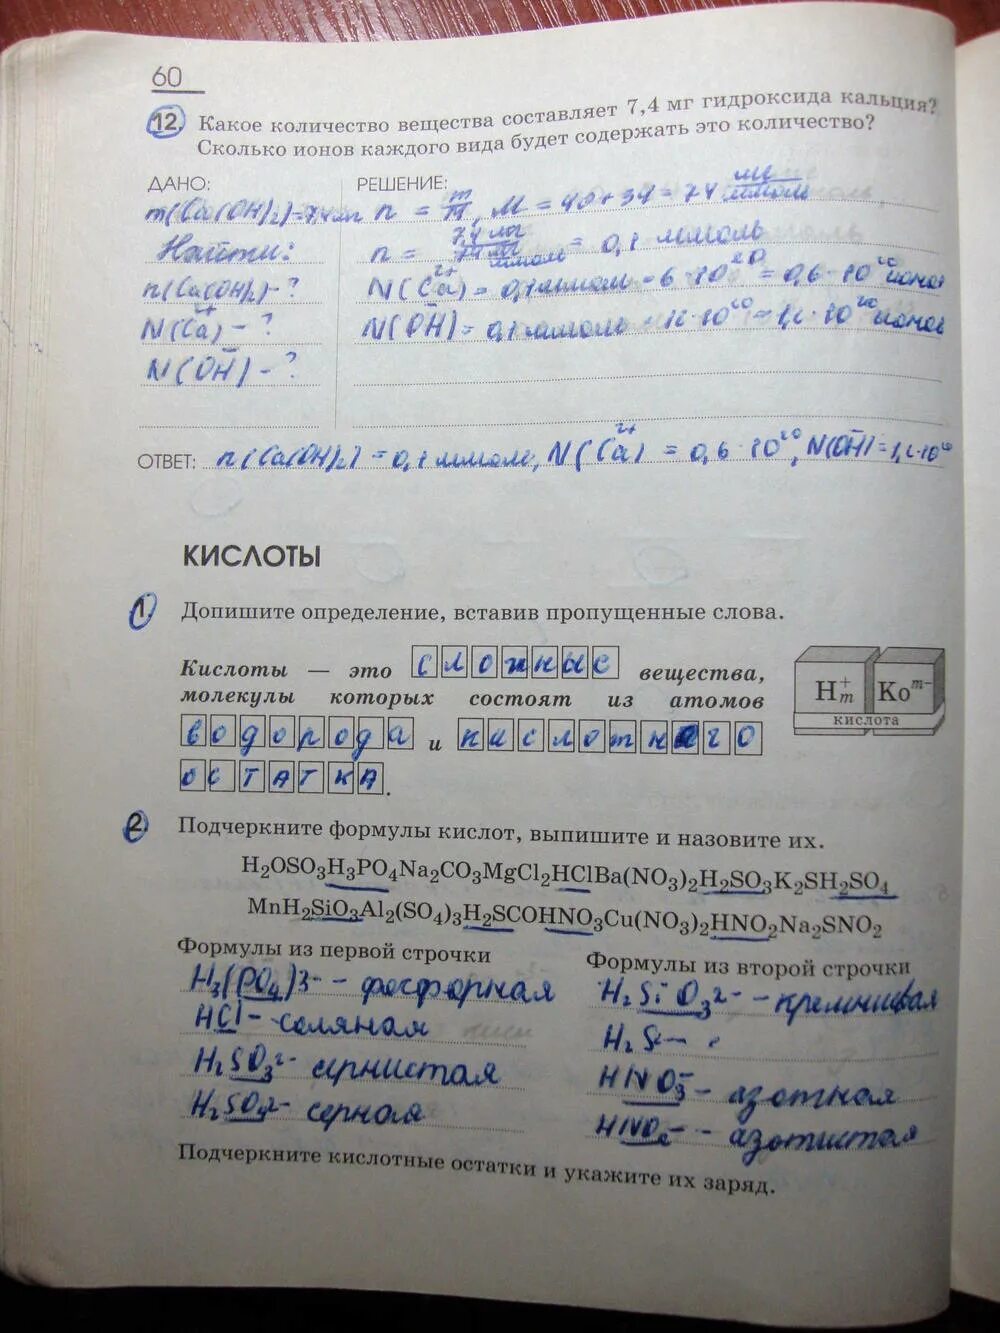 60
12. Какое количество вещества составляет 7,4 мг гидроксида кальция?
Сколько ионов каждого вида будет содержать это количество?
ДАНО: РЕШЕНИЕ:
m(Ca(OH)₂)=7,4мг n = m/M, M = 40+34 = 74 мг/ммоль
Найти: n = 7,4 мг / 74 мг/ммоль = 0,1 ммоль
n(Ca(OH)₂)-? N(Ca²⁺) = 0,1 ммоль · 6·10²⁰ = 0,6·10²⁰ ионов
N(Ca²⁺) - ? N(OH⁻) = 0,1 ммоль · 12·10²⁰ = 1,2·10²⁰ ионов
N(OH⁻) - ?
ОТВЕТ: n(Ca(OH)₂) = 0,1 ммоль, N(Ca²⁺) = 0,6·10²⁰, N(OH⁻)=1,2·10²⁰
КИСЛОТЫ
1. Допишите определение, вставив пропущенные слова.
Кислоты — это сложные вещества,
молекулы которых состоят из атомов
водорода и кислотного
остатка.
H⁺m Koᵐ⁻
кислота
2. Подчеркните формулы кислот, выпишите и назовите их.
H₂OSO₃H₃PO₄Na₂CO₃MgCl₂HClBa(NO₃)₂H₂SO₃K₂SH₂SO₄
MnH₂SiO₃Al₂(SO₄)₃H₂SCOHNO₃Cu(NO₃)₂HNO₂Na₂SNO₂
Формулы из первой строчки Формулы из второй строчки
H₃(PO₄)³⁻ - фосфорная H₂SiO₃²⁻ - кремниевая
HCl⁻ - соляная H₂S
H₂SO₃²⁻ сернистая HNO₃⁻ - азотная
H₂SO₄²⁻ серная HNO₂⁻ - азотистая
Подчеркните кислотные остатки и укажите их заряд.